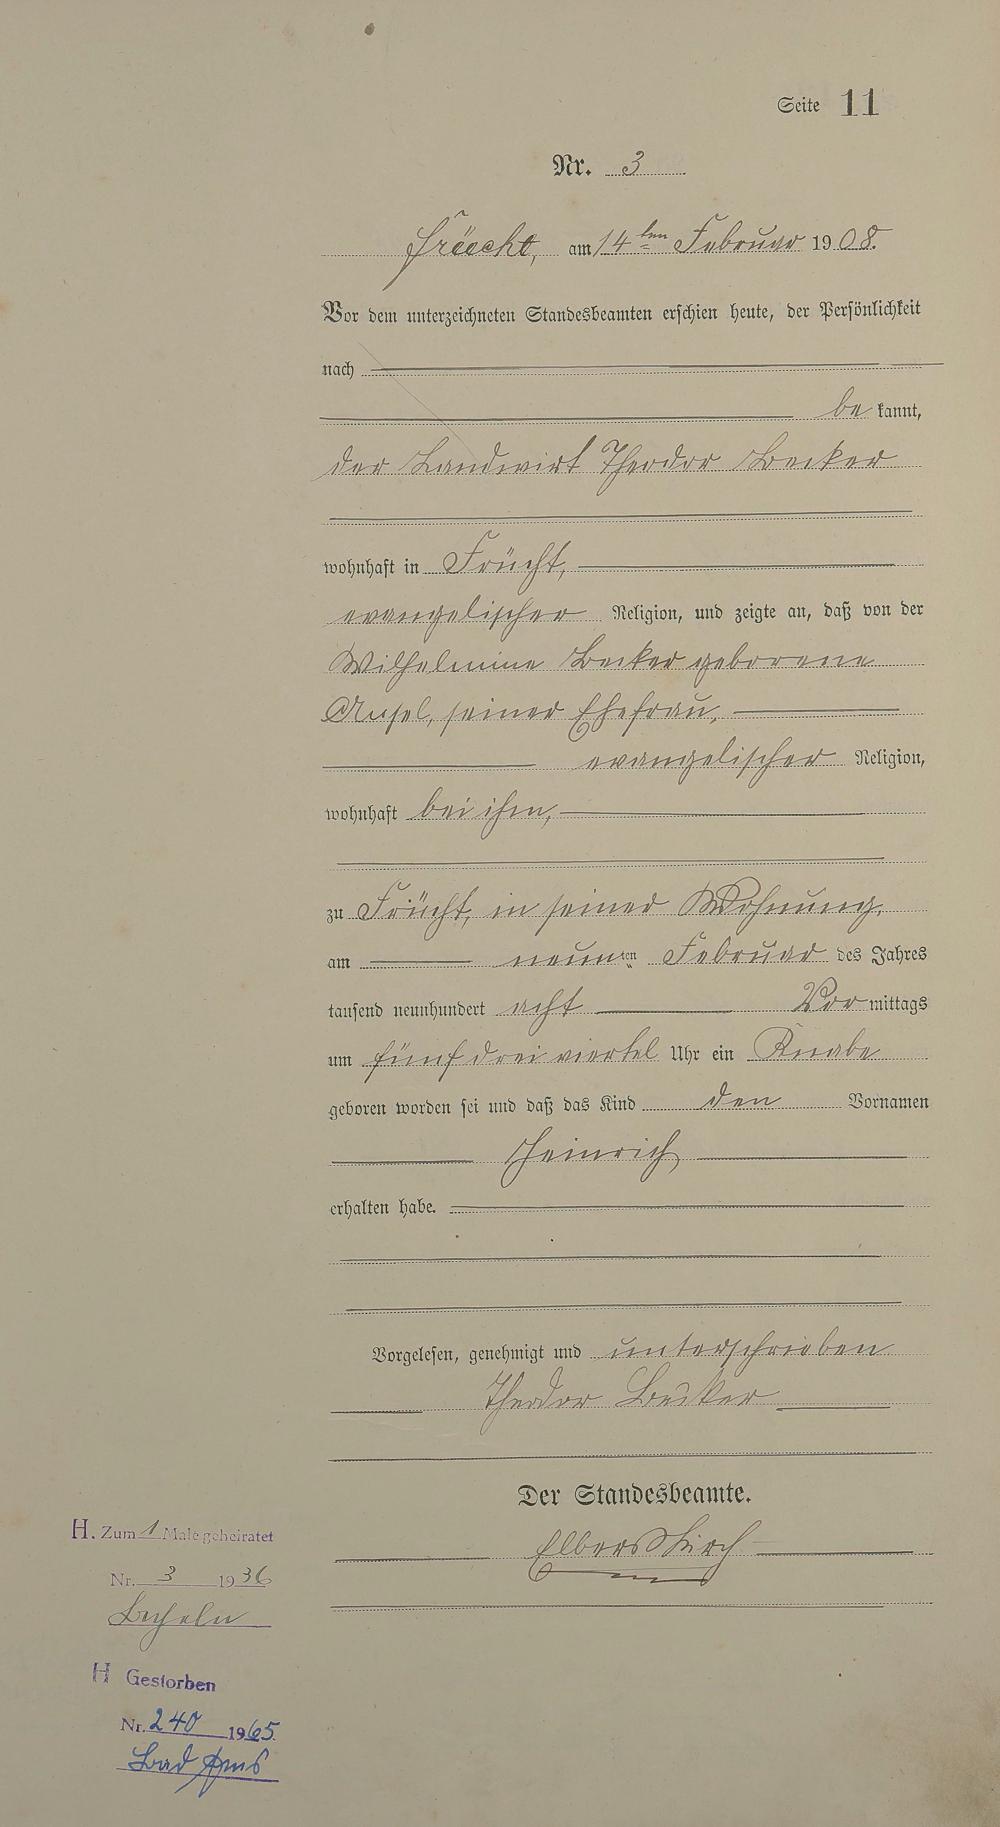 Seite 11
Nr. 3
Frücht, am 14ten Februar 1908.
Vor dem unterzeichneten Standesbeamten erschien heute, der Persönlichkeit
nach
be kannt,
der Landwirt Theodor Becker
wohnhaft in Frücht,
evangelischer Religion, und zeigte an, daß von der
Wilhelmine Becker geborene
seiner Ehefrau,
evangelischer Religion,
wohnhaft bei ihm,
zu Frücht, in seiner Wohnung,
am neunten Februar des Jahres
tausend neunhundert acht Vormittags
um fünf drei viertel Uhr ein Knabe
geboren worden sei und daß das Kind den Vornamen
Heinrich
erhalten habe.
Vorgelesen, genehmigt und unterschrieben
Theodor Becker
Der Standesbeamte.
Elberskirch
H. Zum 1 Male geheiratet
Nr. 3 1936
Becheln
H Gestorben
Nr. 240 1965
Bad Ems